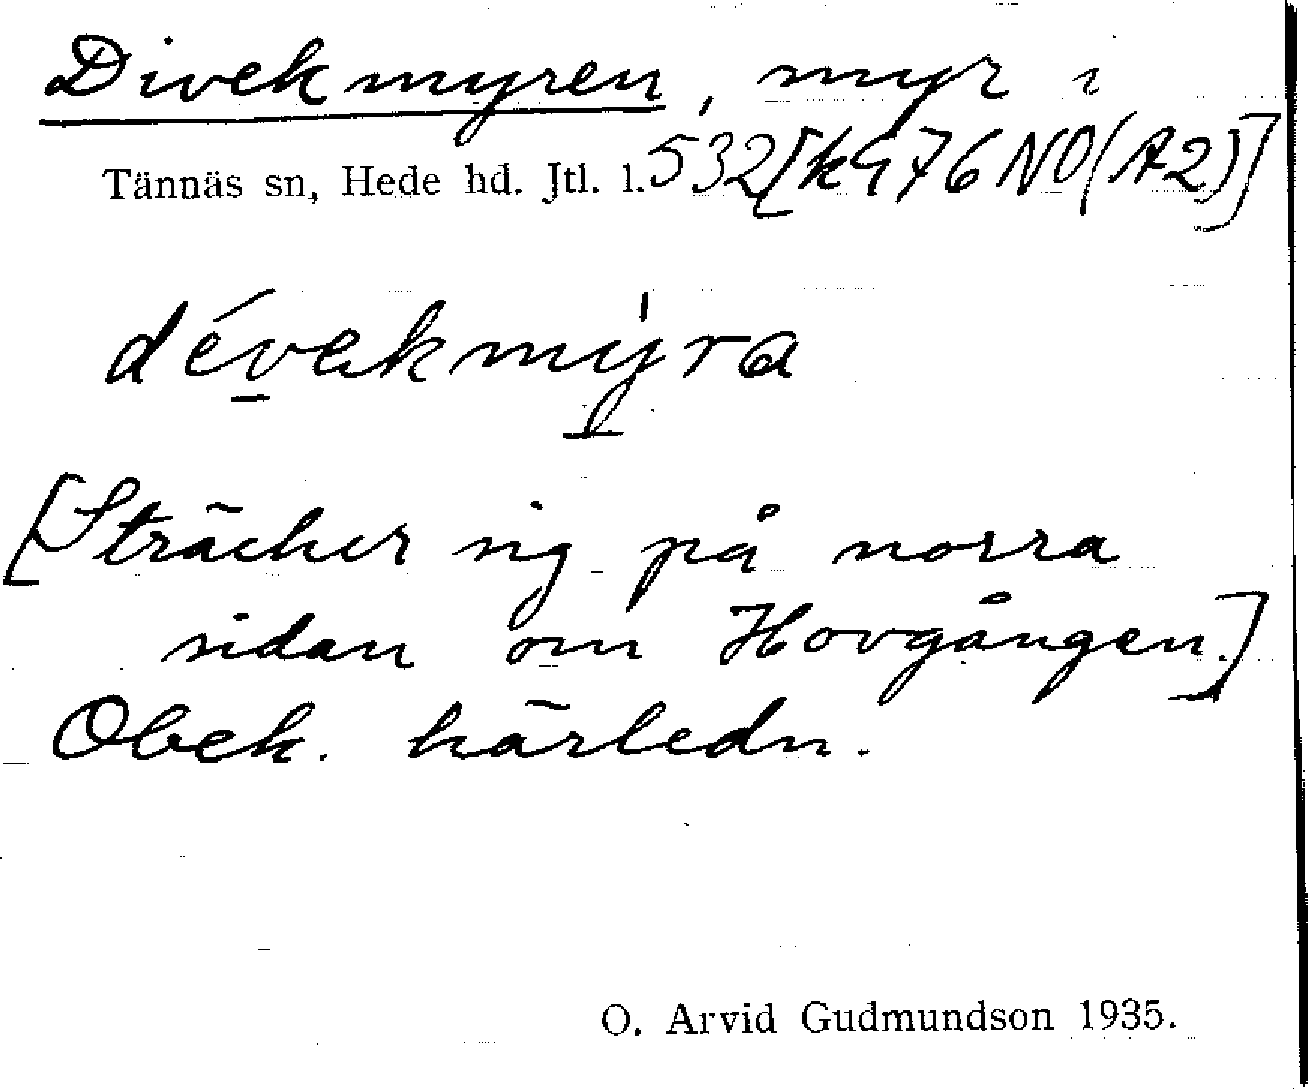 Divekmyren, myr i
Tännäs sn, Hede hd. Jtl. l. 532[k476NO(A2)]
dévekmy̍ra
[Sträcker sig på norra
sidan om Hovgången.]
Obek. härledn.
O. Arvid Gudmundson 1935.